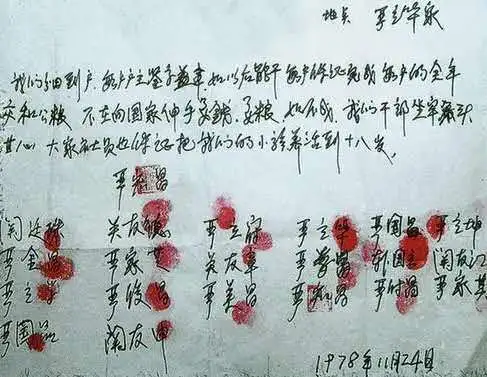 地点 严立华家
我们分田到户，每户户主签字盖章，如以后能干，每户保证完成每户的全年
交和公粮 不在向国家伸手要钱要粮 如不成，我们干部坐牢杀头
甘心，大家社员也保证把我们的小孩养活到十八岁。
严宏昌
关廷珠 关友德 严立符 严立华 严国昌 严立坤
严金昌 严家芝 关友章 严学昌 韩国云 关友江
严立学 严俊昌 严美昌 严宏昌 严付昌 严家其
严国品 关友申
1978年11月24日